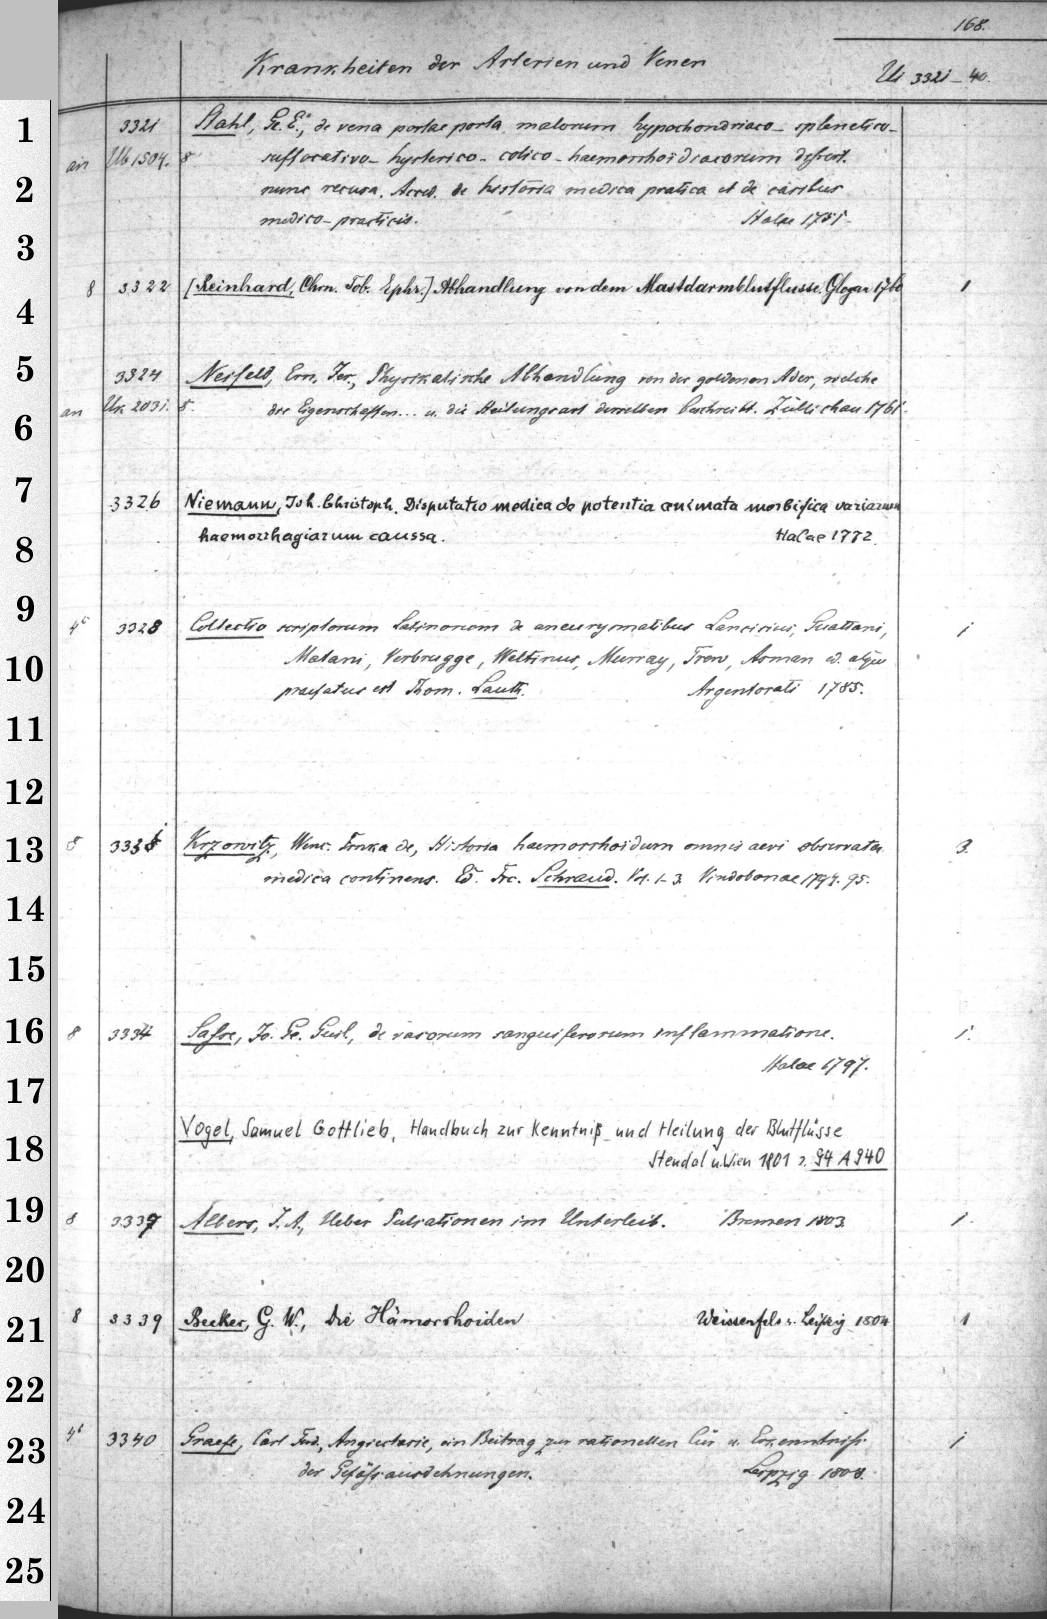 168.
Krankheiten der Arterien und Venen
Ui 3321-40.
1
3321 Stahl, Ge. E., de vena portae porta malorum hypochondriaco- splenetico-
an Ub 1504. 8 suffocativo- hysterico- colico- haemorrhoidiacorum dissert.
2
nunc recusa. Acced. de historia medica pratica et de casibus
medico-practicis. Halae 1751.
3
8 3322 [Reinhard, Chrn. Tob. Ephr.] Abhandlung von dem Mastdarmblutflusse. Glogau 1760 1
4
5
3324 Neifeld, Ern. Jer., Physikalische Abhandlung von der goldenen Ader, welche
an Uk 2031. 8. der Eigenschaften... u. die Heilungsart derselben beschreibt. Züllichau 1761.
6
7
3326 Niemann, Joh. Christoph. Disputatio medica de potentia animata morbifica variarum
8
haemorrhagiarum caussa. Halae 1772.
9
4° 3328 Collectio scriptorum Latinorum de aneurysmatibus Lancisius, Guattani, 1
10
Matani, Verbrugge, Weltinus, Murray, Trew, Asman ed.
praefatus est Thom. Lauth. Argentorati 1785.
11
12
13
8 333 Krzowitz, Wenc. Trnka de, Historia haemorrhoidum omnis aevi observata 3.
medica continens. Ed. Frc. Schraud. Vol. 1-3. Vindobonae 1794. 95.
14
15
16
8 3334 Safse, Jo. Ge. Guil., de vasorum sanguiferorum inflammatione. 1.
Halae 1797.
17
Vogel, Samuel Gottlieb, Handbuch zur Kenntniß und Heilung der Blutflüsse
18
Stendal u. Wien 1801 s. 94 A 940
19
8 3337 Albers, J. A., Ueber Pulsationen im Unterleib. Bremen 1803. 1.
20
21
8 3339 Becker, G. W., Die Hämorrhoiden Weissenfels u. Leipzig 1804 1
22
23
4° 3340 Graefe, Carl Ferd., Angiectasie, ein Beitrag zur rationellen Cur u. Erkenntniss 1
der Gefässausdehnungen. Leipzig 1808.
24
25